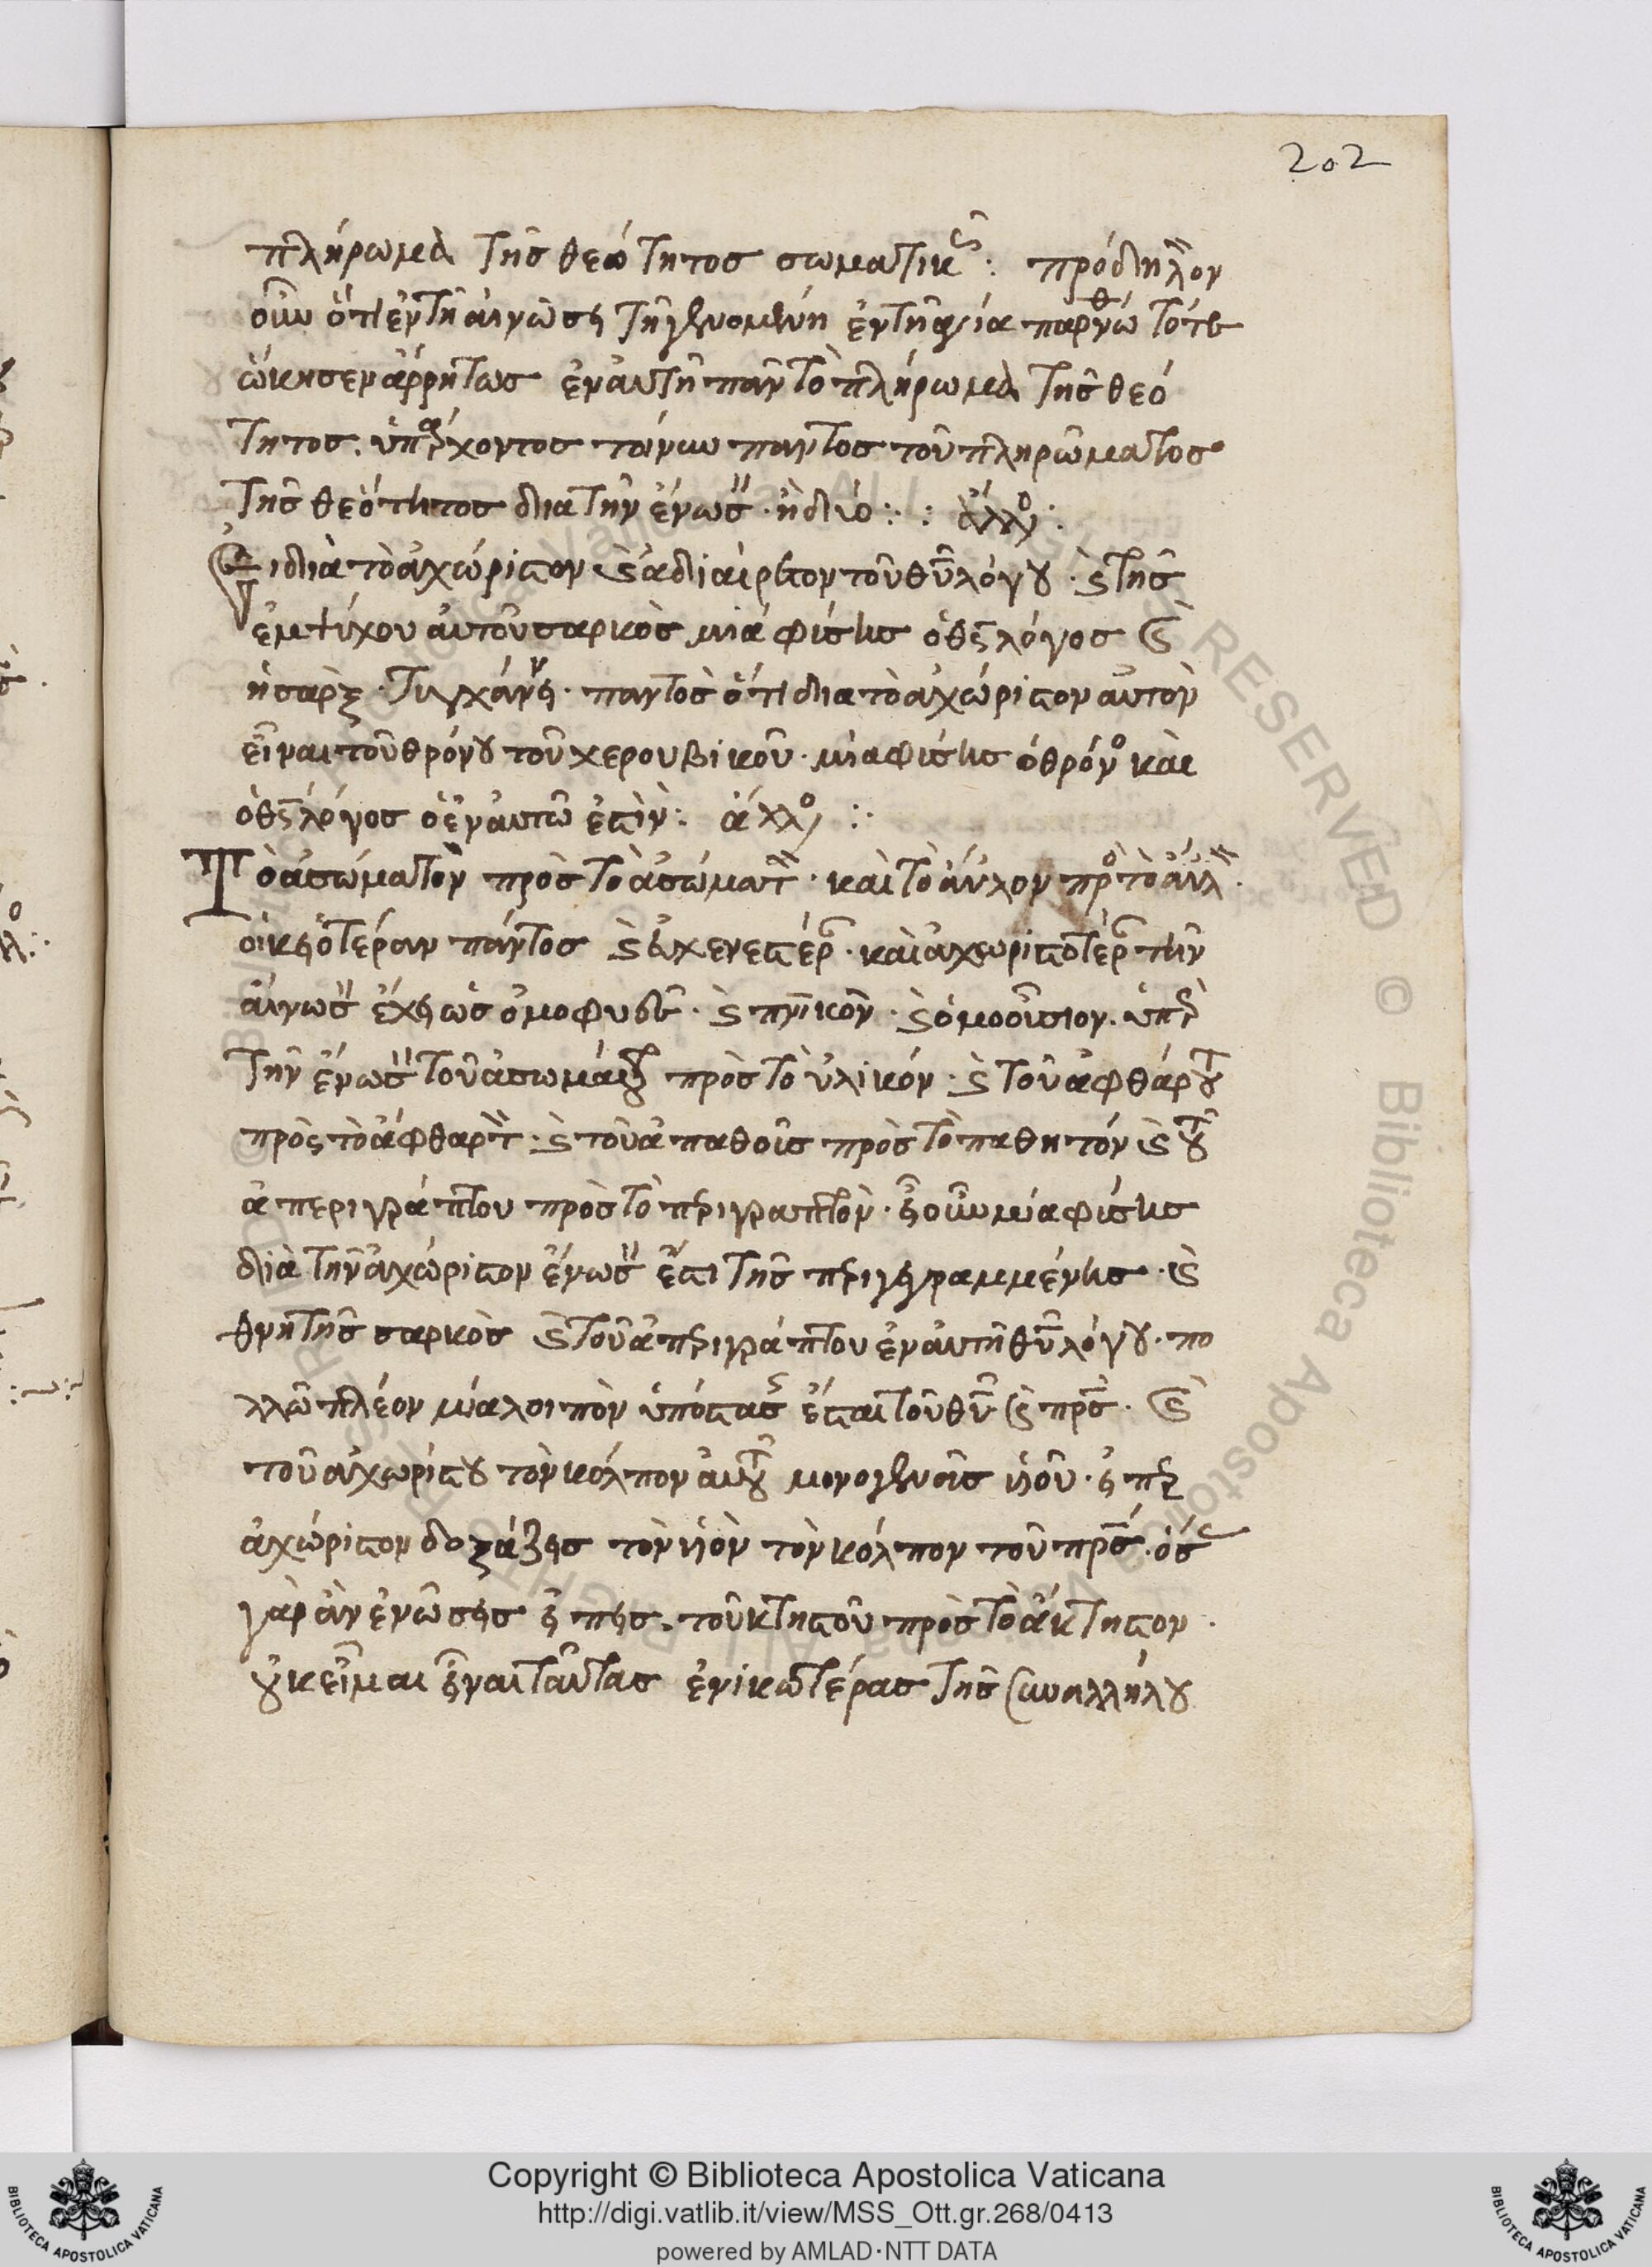 202
πλήρωμα τῆς θεότητος σωματικῶς: πρόδηλον
οὖν ὅτι ἐν τῇ ἑνώσει τῇ γενομένη ἐν τῇ ἁγία παρθένω τότε
ὤκησεν ἀρρήτως ἐν αὐτῇ πᾶν τὸ πλήρωμα τῆς θεό
τητος. ὑπάρχοντος τοίνυν παντὸς τοῦ πληρώματος
τῆς θεότητος διὰ τὴν ἕνωσιν. ἢ δύο:: ἄλλο:
Εἰ διὰ τὸ ἀχώριστον καὶ ἀδιαίρετον τοῦ θυ λόγου. καὶ τῆς
ἐμψύχου αὐτοῦ σαρκὸς μία φύσις ὁ θς λόγος καὶ
ἡ σάρξ. τυγχάνει. παντὸς ὅτι διὰ τὸ ἀχώριστον αὐτὸν
εἶναι τοῦ θρόνου τοῦ χερουβικοῦ. μία φύσις ὁ θρόνος καὶ
ὁ θς λόγος ὁ ἐν αὐτῶ ἐστίν: ἄλλο:
Τὸ ἀσώματον πρὸς τὸ ἀσώματον. καὶ τὸ ἄυλον πρὸς τὸ ἄυλον.
οἰκειοτέραν πάντος καὶ εὐγενεστέραν. καὶ ἀχωριστοτέραν τὴν
ἕνωσιν ἔχει ὡς ὁμοφυὲς. καὶ πνικὸν. καὶ ὁμοούσιον. ὑπὲρ
τὴν ἕνωσιν τοῦ ἀσωμάτου πρὸς τὸ ὑλικόν. καὶ τοῦ ἀφθάρτου
πρὸς τὸ ἄφθαρτον. καὶ τοῦ ἀπαθοῦς πρὸς τὸ παθητόν καὶ τοῦ
ἀπεριγράπτου πρὸς τὸ περιγραπτὸν. εἰ οὖν μία φύσις
διὰ τὴν ἀχώριστον ἕνωσιν ἐστι τῆς περιγεγραμμένης. καὶ
θνητῆς σαρκὸς καὶ τοῦ ἀπεριγράπτου ἐν αὐτῇ θυ λόγου. πο
λλῶ πλέον μία λοιπὸν ὑπόστασις ἔσται τοῦ θυ καὶ πρς. καὶ
τοῦ ἀχωρίστου τὸν κόλπον αὐτοῦ μονογενοῦς υἱοῦ. εἴπερ
ἀχώριστον δοξάζεις τὸν υἱὸν τὸν κόλπον τοῦ πρς. ὅσας
γὰρ ἂν ἑνώσεις εἴπεις. τοῦ κτιστοῦ πρὸς τὸ ἄκτηστον.
οὐκ εἶμαι εἶναι ταύτας ἑνικωτέρας τῆς συναλλήλου
Copyright © Biblioteca Apostolica Vaticana
http://digi.vatlib.it/view/MSS_Ott.gr.268/0413
powered by AMLAD·NTT DATA